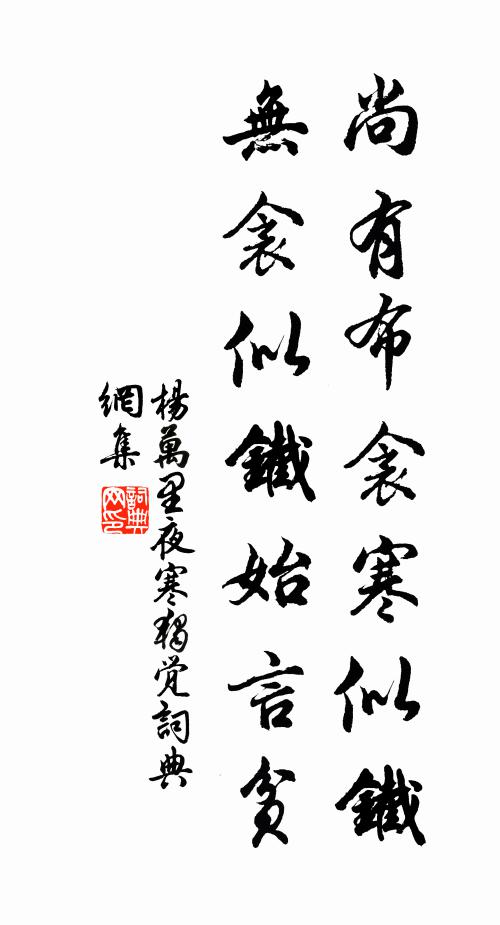 尚有布衾寒似鐵
無衾似鐵始言貧
楊萬里夜寒獨覺詞典
網集
詞典
网印